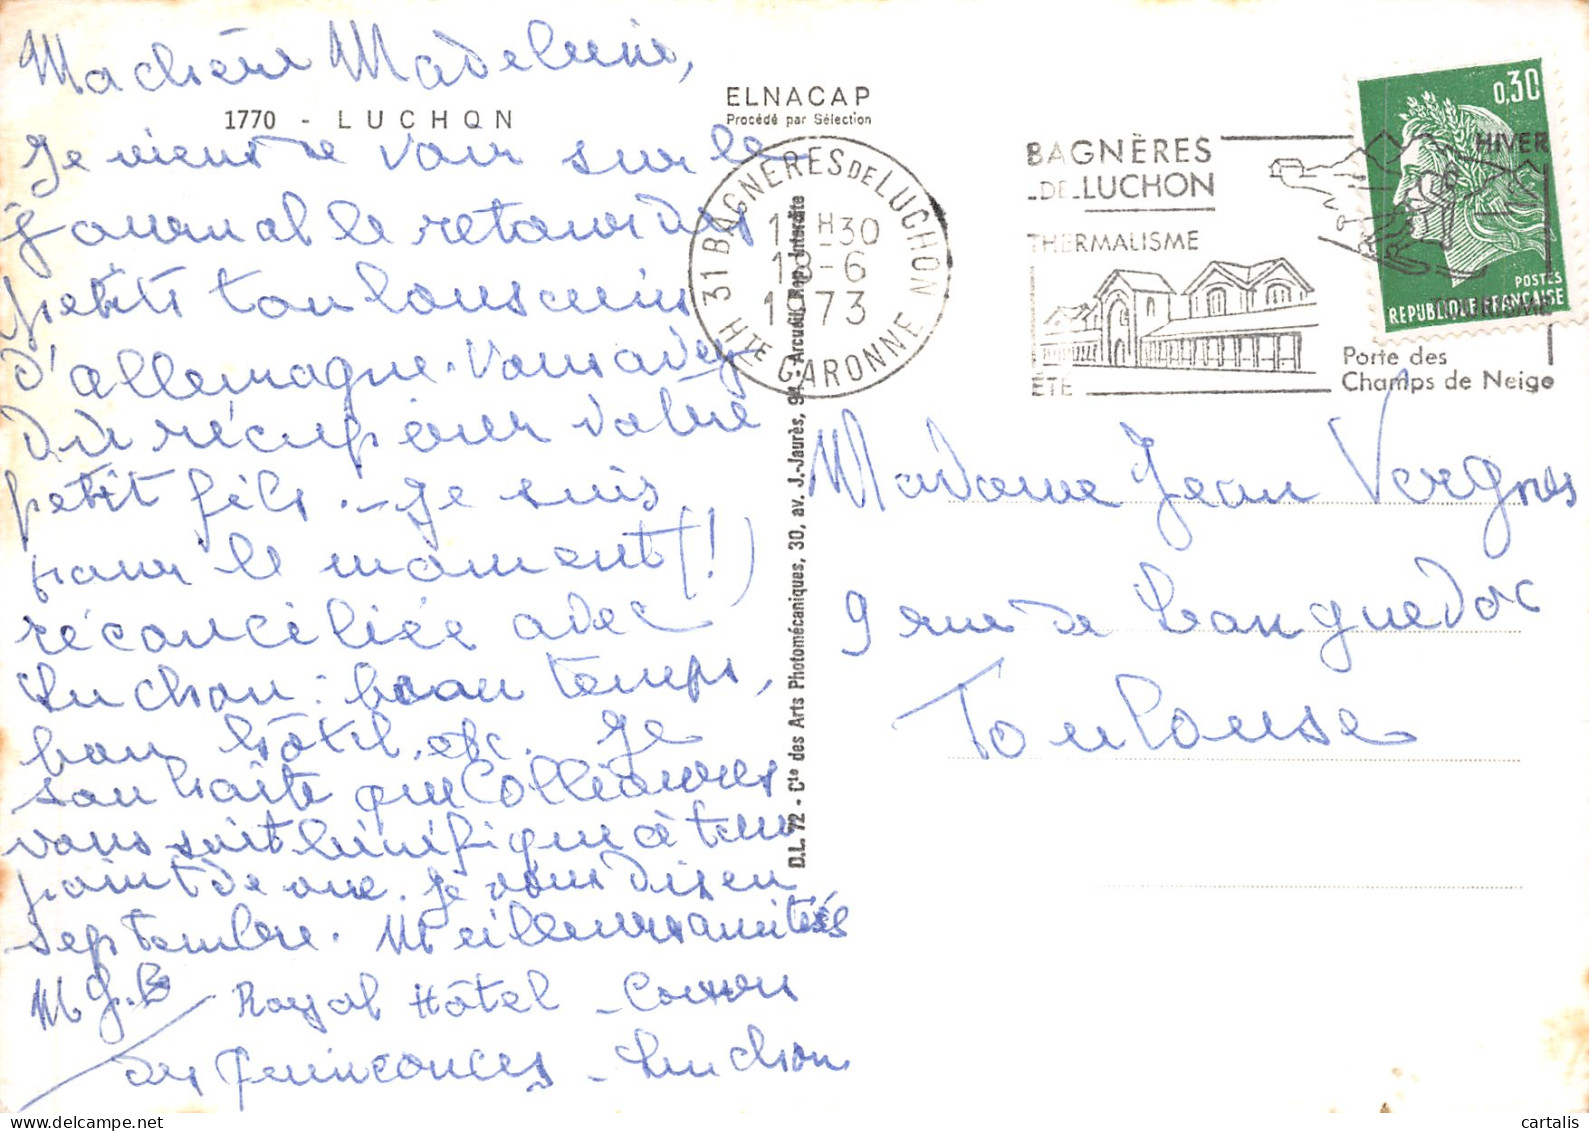 Ma chère Madeleine,
1770 - LUCHON
Je viens de voir sur le
journal le retour des
petits toulousains
d'allemagne. Vous avez
dû récupérer votre
petit fils. - Je suis
pour le moment (!)
réconciliée avec
Luchon : beau temps,
bon hôtel, etc. Je
souhaite que Collioures
vous soit bénéfique à tous
point de vue. Je vous dis en
septembre. Meilleures amitiés
M G. B
Royal Hôtel - Cours
des Quinconces - Luchon
ELNACAP
Procédé par Sélection
D.L. 72 - Cie des Arts Photomécaniques, 30, av. J.-Jaurès, 94 - Arcueil, Rep. Interdite
31 BAGNÈRES DE LUCHON
H30
-6
1973
HTE GARONNE
BAGNÈRES
DE LUCHON
THERMALISME
ÉTÉ
HIVER
Porte des
Champs de Neige
0,30
POSTES
REPUBLIQUE FRANÇAISE
Madame Jean Vergnes
9 rue de Languedoc
Toulouse
cartalis
delcampe.net